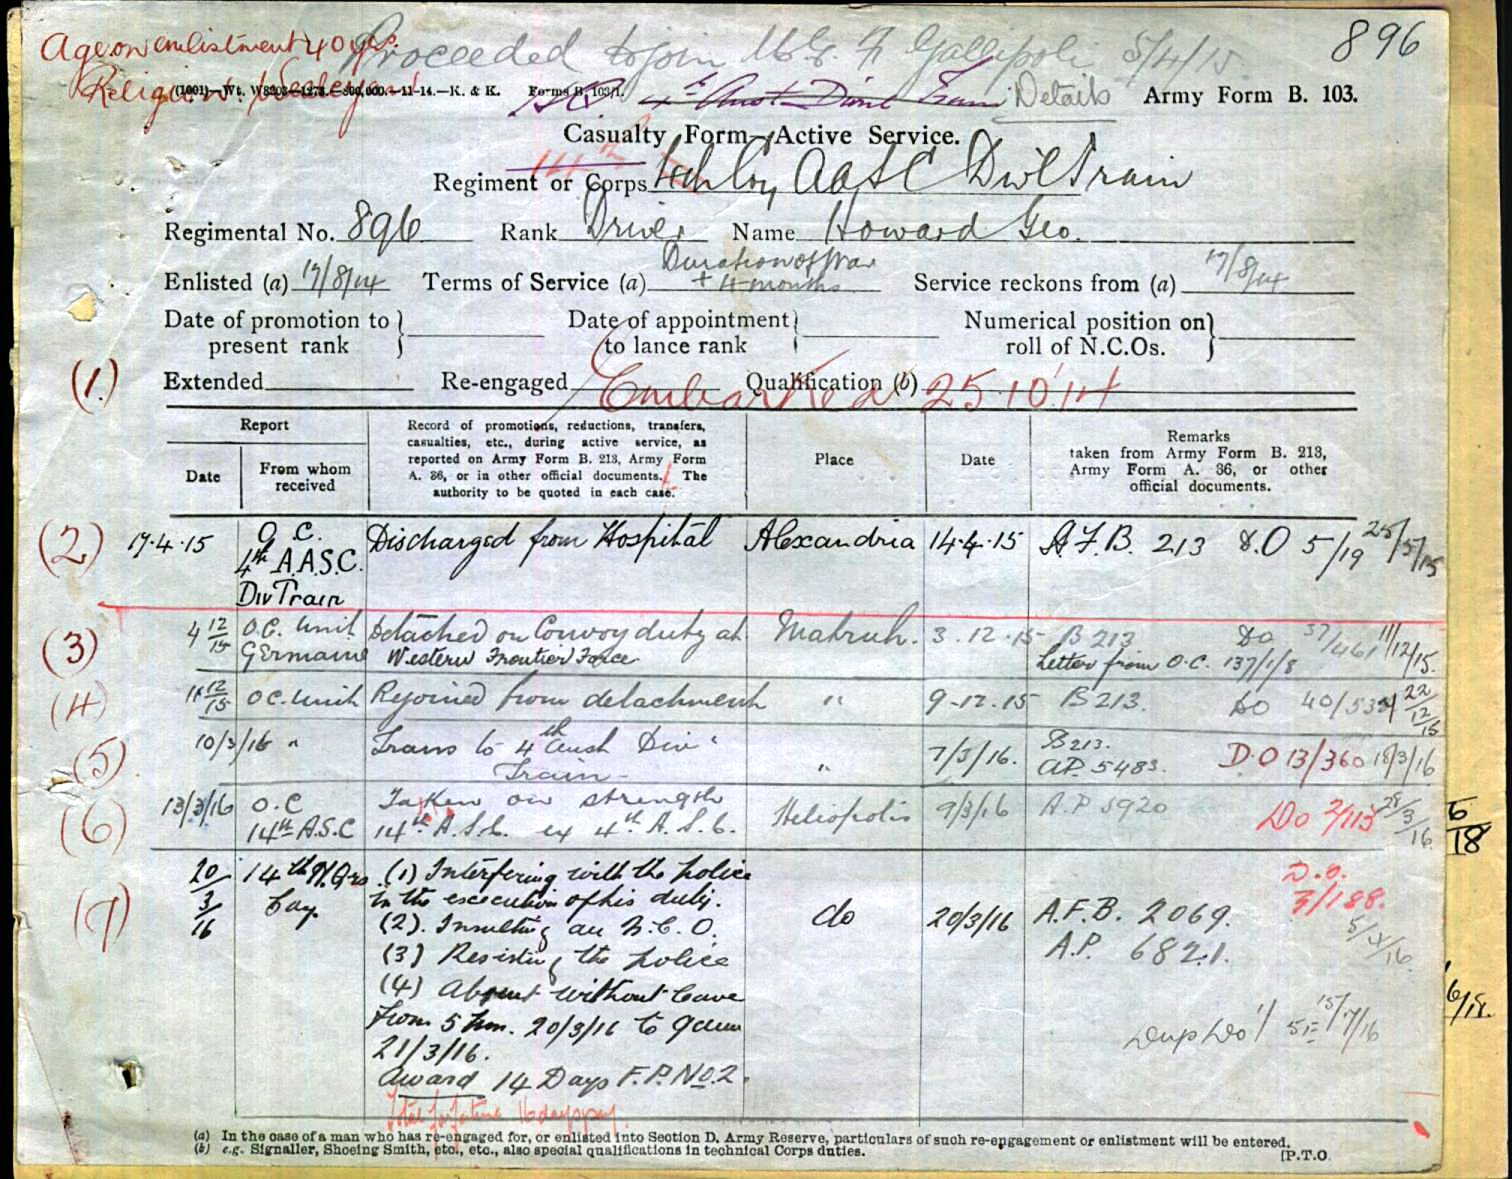 Age on enlistment 40 yrs.
Proceeded to join M.E.F. Gallipoli 5/4/15
896
Religion: Wesleyan
(1001)—Wt. W8203—1278.—800,000.—11-14.—K. & K. Forms B. 103/1.
4th Aust Divnl Train
Details
Army Form B. 103.
Casualty Form—Active Service.
Regiment or Corps 4th Coy AASC Divl Train
Regimental No. 896 Rank Driver Name Howard Geo.
Enlisted (a) 17/8/14 Terms of Service (a) Duration of War + 4 months Service reckons from (a) 17/8/14
Date of promotion to present rank } Date of appointment to lance rank } Numerical position on roll of N.C.Os. }
(1.) Extended Re-engaged Qualification (b)
Embarked 25.10.14
Report
Date
From whom received
Record of promotions, reductions, transfers, casualties, etc., during active service, as reported on Army Form B. 213, Army Form A. 36, or in other official documents. The authority to be quoted in each case.
Place
Date
Remarks
taken from Army Form B. 213, Army Form A. 36, or other official documents.
(2) 17.4.15 O.C. Discharged from Hospital Alexandria 14.4.15 A.F.B. 213 D.O 5/19 25/5/15
4th A.A.S.C.
Div Train
(3) 4 12/15 O.C. Unit Detached on Convoy duty at Matruh. 3.12.15 B 213 Do 37/461 11/12/15.
Germaine Western Frontier Force Letter from O.C. 137/1/8
(4) 12/15 OC. Unit Rejoined from detachment " 9-12.15 B 213. Do 22/12/15
(5) 10/3/16 " Trans to 4th Aust Div. " 7/3/16. B 213. D.O 13/360 18/3/16
Train AP. 5483.
(6) 13/3/16 O.C Taken on strength Heliopolis 9/3/16 A.P 5920 Do 2/113 28/3/16
14th A.S.C 14th A.S.C. ex 4th A.S.C.
(7) 20/3/16 14th H/Qrs (1) Interfering with the police do 20/3/16 A.F.B. 2069. D.O. 3/188.
Coy. in the execution of his duty. 5/4/16.
(2). Insulting an N.C.O. A.P. 6821.
(3) Resisting the police
(4) Absent without leave
from 5 pm. 20/3/16 to 9 am
21/3/16.
Dup Do 1/ 15/7/16
Award 14 Days F.P. No. 2.
Total forfeiture 16 days pay.
6/18
6/18.
(a) In the case of a man who has re-engaged for, or enlisted into Section D. Army Reserve, particulars of such re-engagement or enlistment will be entered.
(b) e.g. Signaller, Shoeing Smith, etc., etc., also special qualifications in technical Corps duties.
[P.T.O